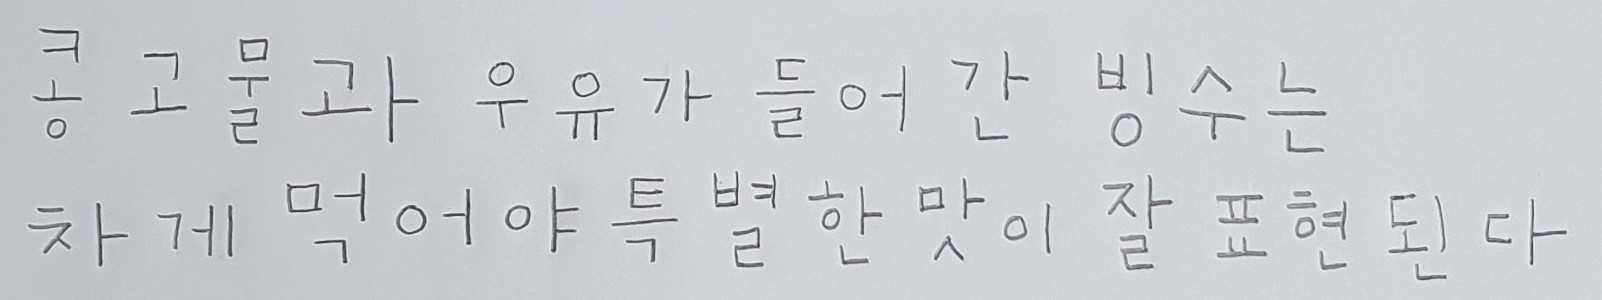 콩고물과 우유가 들어간 빙수는
차게 먹어야 특별한 맛이 잘 표현된다